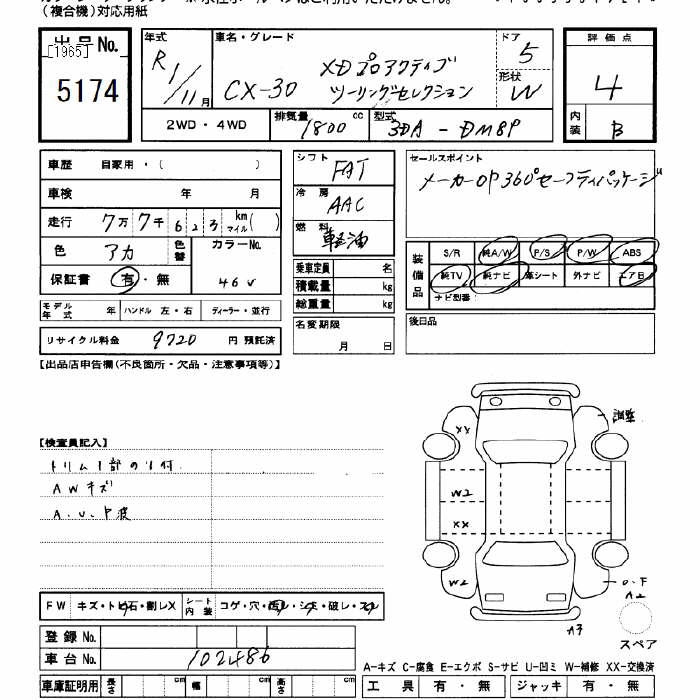 （複合機）対応用紙
出品No.
[1965]
5174
年式
R1/11月
車名・グレード
CX-30
XDプロアクティブ
ツーリングセレクション
ドア
5
形状
W
評価点
4
内装
B
2WD・4WD
排気量
1800cc
型式
3DA-DM8P
車歴 自家用・（ ）
車検 年 月
走行 7万7千623 km マイル( )
色 アカ 色替 カラーNo. 46V
保証書 有・無
モデル年式 年 ハンドル 左・右 ディーラー・並行
リサイクル料金 9720 円 預託済
シフト FAT
冷房 AAC
燃料 軽油
乗車定員 名
積載量 kg
総重量 kg
名変期限
月 日
セールスポイント
メーカーOP360°セーフティパッケージ
装備品
S/R 純A/W P/S P/W ABS
純TV 純ナビ 革シート 外ナビ エアB
ナビ型番：
後日品
【出品店申告欄(不良箇所・欠品・注意事項等)】
【検査員記入】
トリム1部のり付
AWキズ
A.U.P波
調整
XX
W2
XX
W2
O.F
A2
A3
スペア
FW キズ・トビ石・割レX シート内装 コゲ・穴・汚レ・シミ・破レ・スレ
登録No.
車台No. 102486
車庫証明用 長さ cm 幅 cm 高さ cm
A-キズ C-腐食 E-エクボ S-サビ U-凹ミ W-補修 XX-交換済
工具 有・無 ジャッキ 有・無